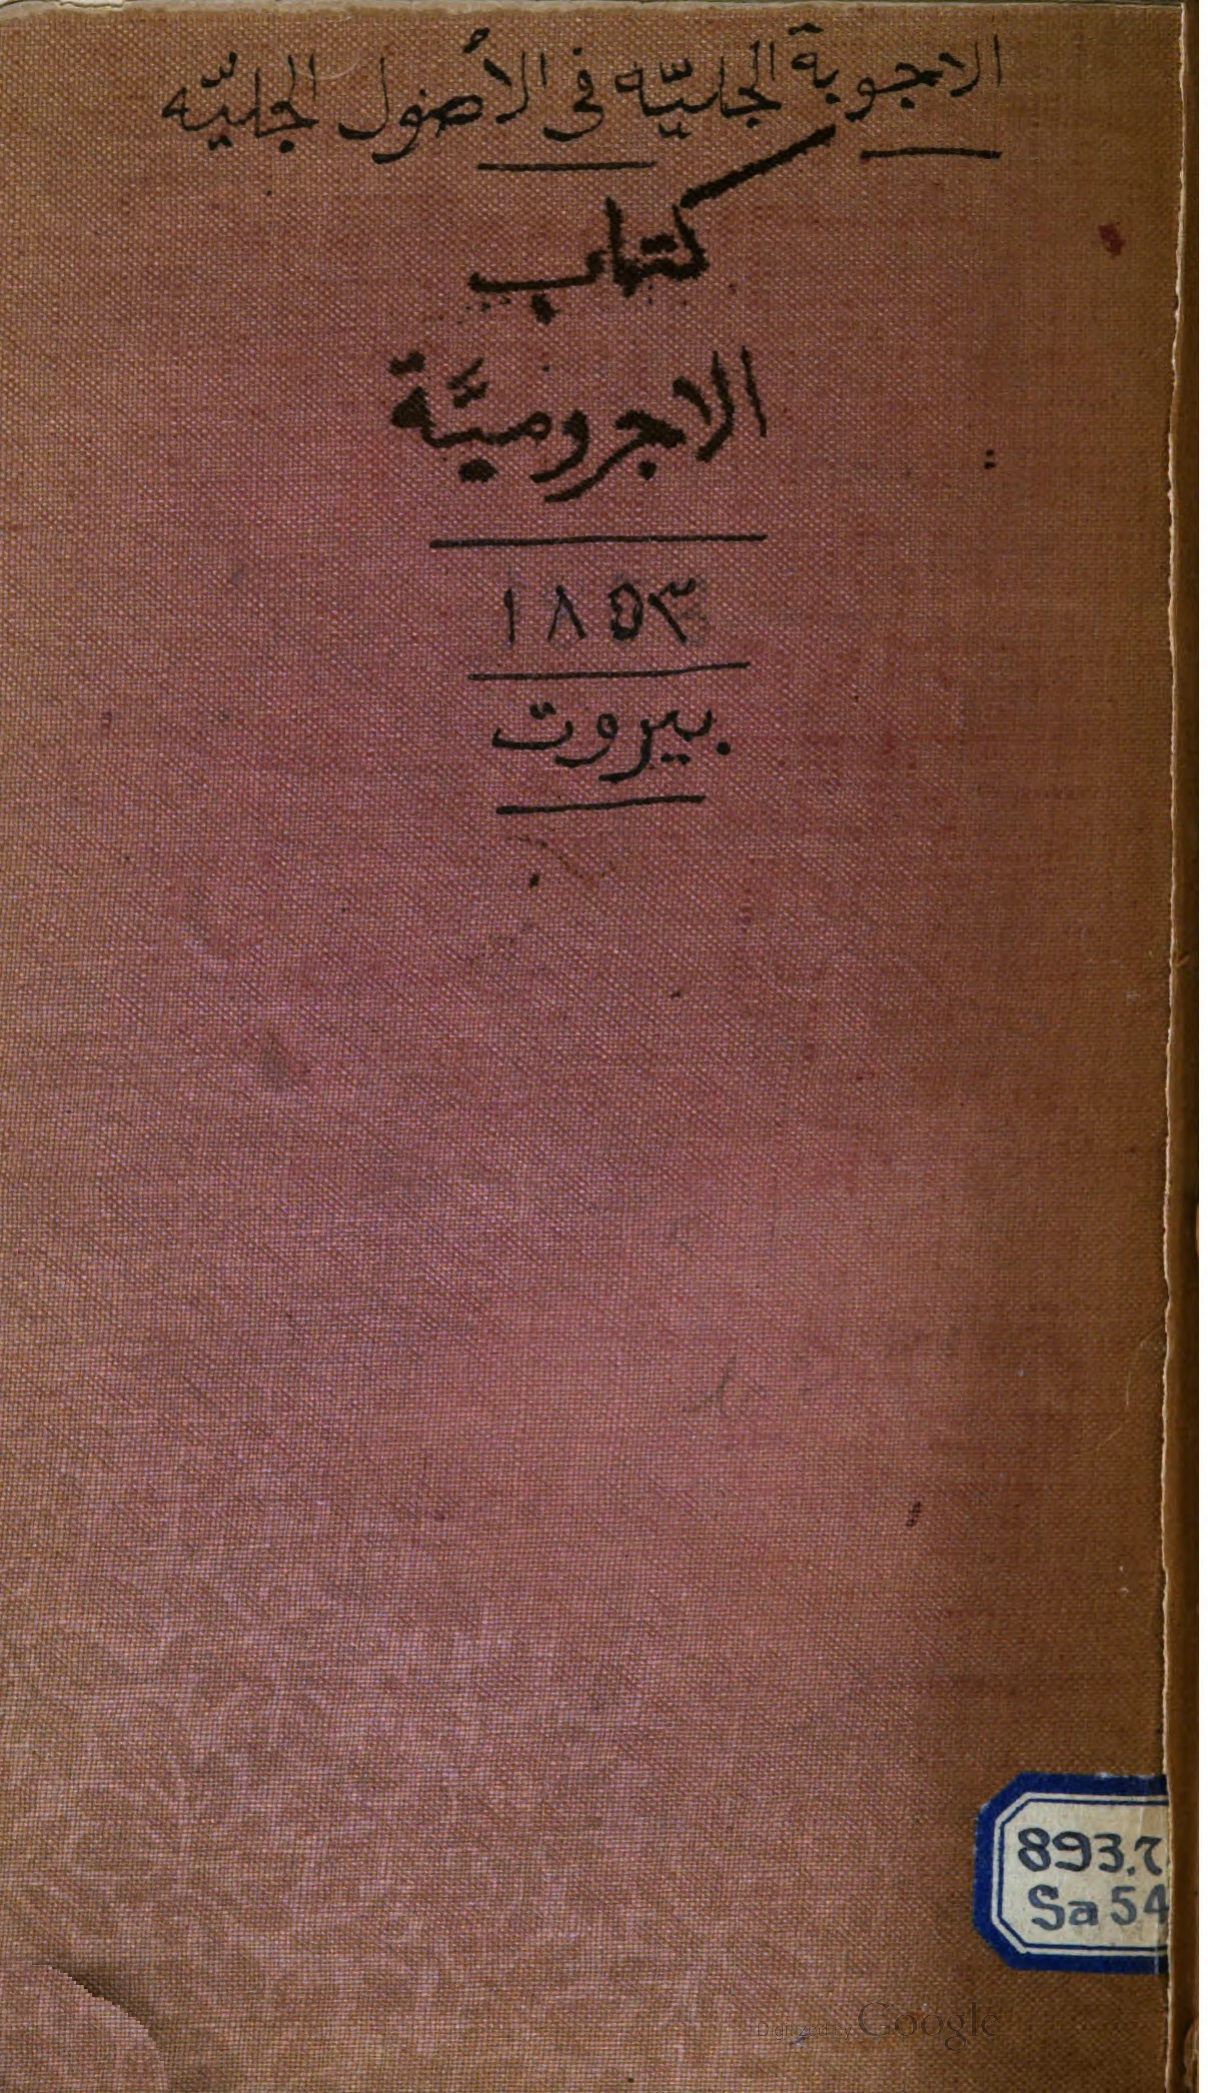 الاجوبة الجليّه فى الأصول الجليّه
كتاب
الاجروميَّة
١٨٥٣
بيروت
893.7
Sa 54
Digitized by Google